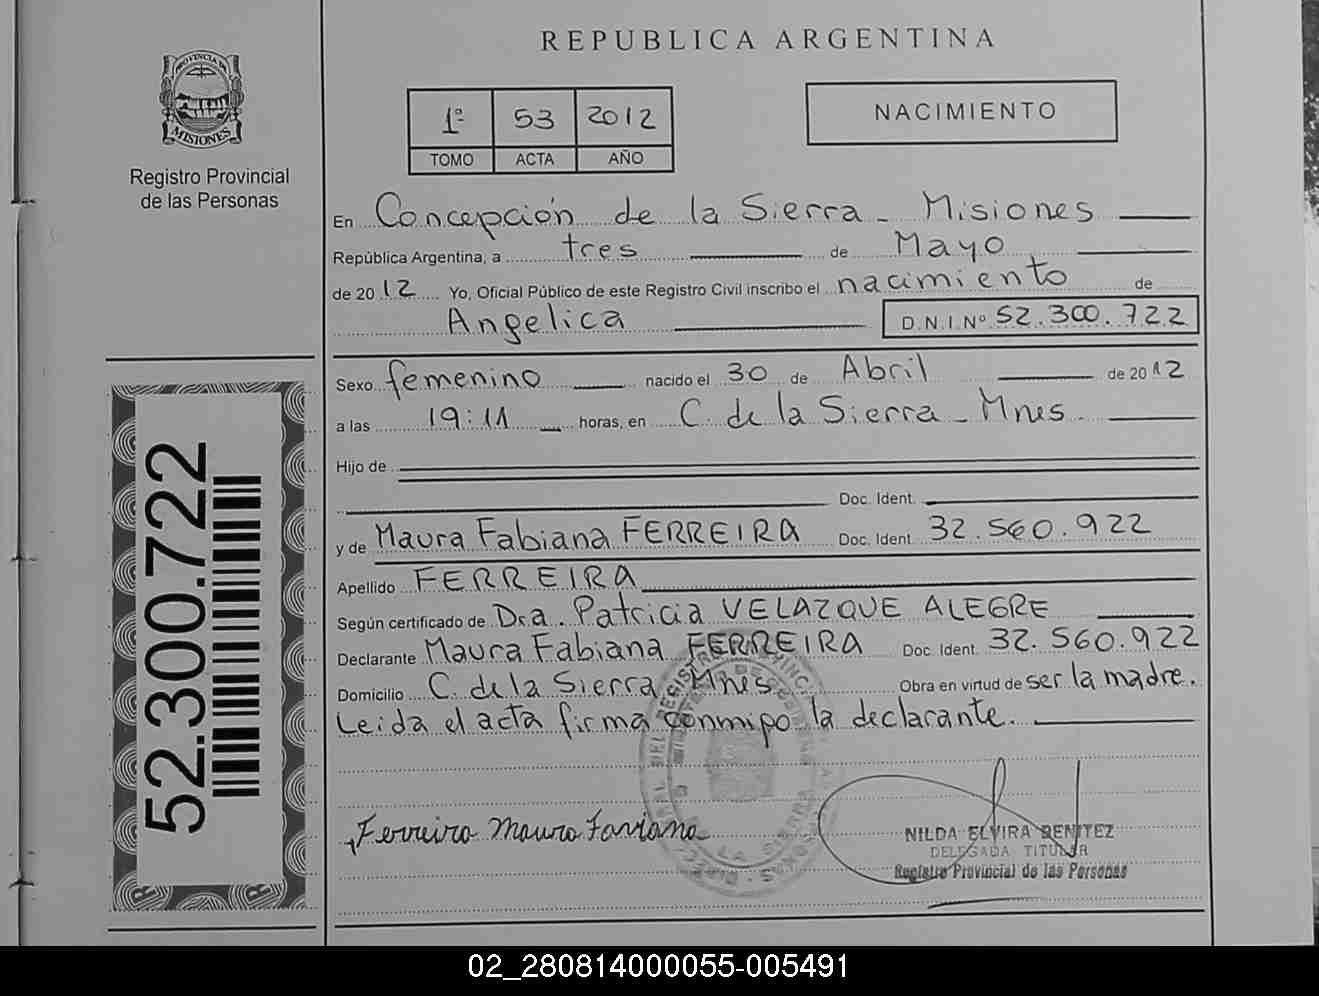 REPUBLICA ARGENTINA
PROVINCIA DE
MISIONES
Registro Provincial
de las Personas
1º 53 2012
TOMO ACTA AÑO
NACIMIENTO
En Concepción de la Sierra - Misiones
República Argentina, a tres de Mayo
de 2012 Yo, Oficial Público de este Registro Civil inscribo el nacimiento de
Angelica D.N.I.Nº 52.300.722
Sexo femenino nacido el 30 de Abril de 2012
a las 19:11 horas, en C. de la Sierra - Mnes.
Hijo de
Doc. Ident.
y de Maura Fabiana FERREIRA Doc. Ident. 32.560.922
Apellido FERREIRA
Según certificado de Dra. Patricia VELAZQUE ALEGRE
Declarante Maura Fabiana FERREIRA Doc. Ident. 32.560.922
Domicilio C. de la Sierra Mnes. Obra en virtud de ser la madre.
Leida el acta firma conmipo la declarante.
52.300.722
Ferreira Maura Faviana
NILDA ELVIRA BENITEZ
DELEGADA TITULAR
Registro Provincial de las Personas
02_280814000055-005491